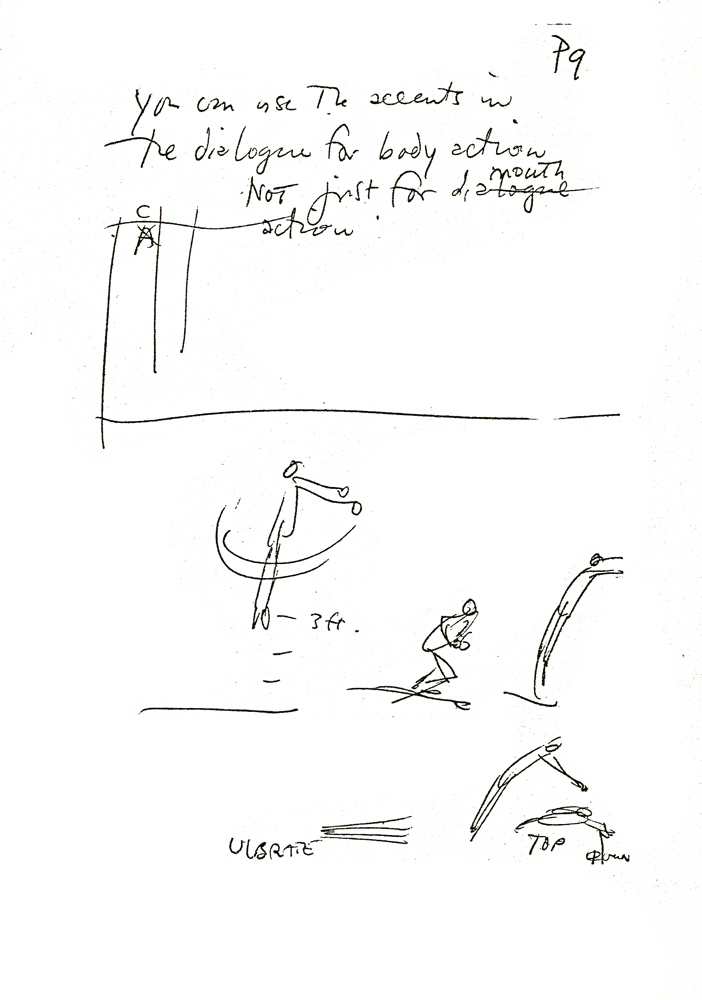 P9
You can use The accents in
The dialogue for body action
mouth
Not just for dialogue
action.
C
A
3 ft.
VIBRATE
TOP